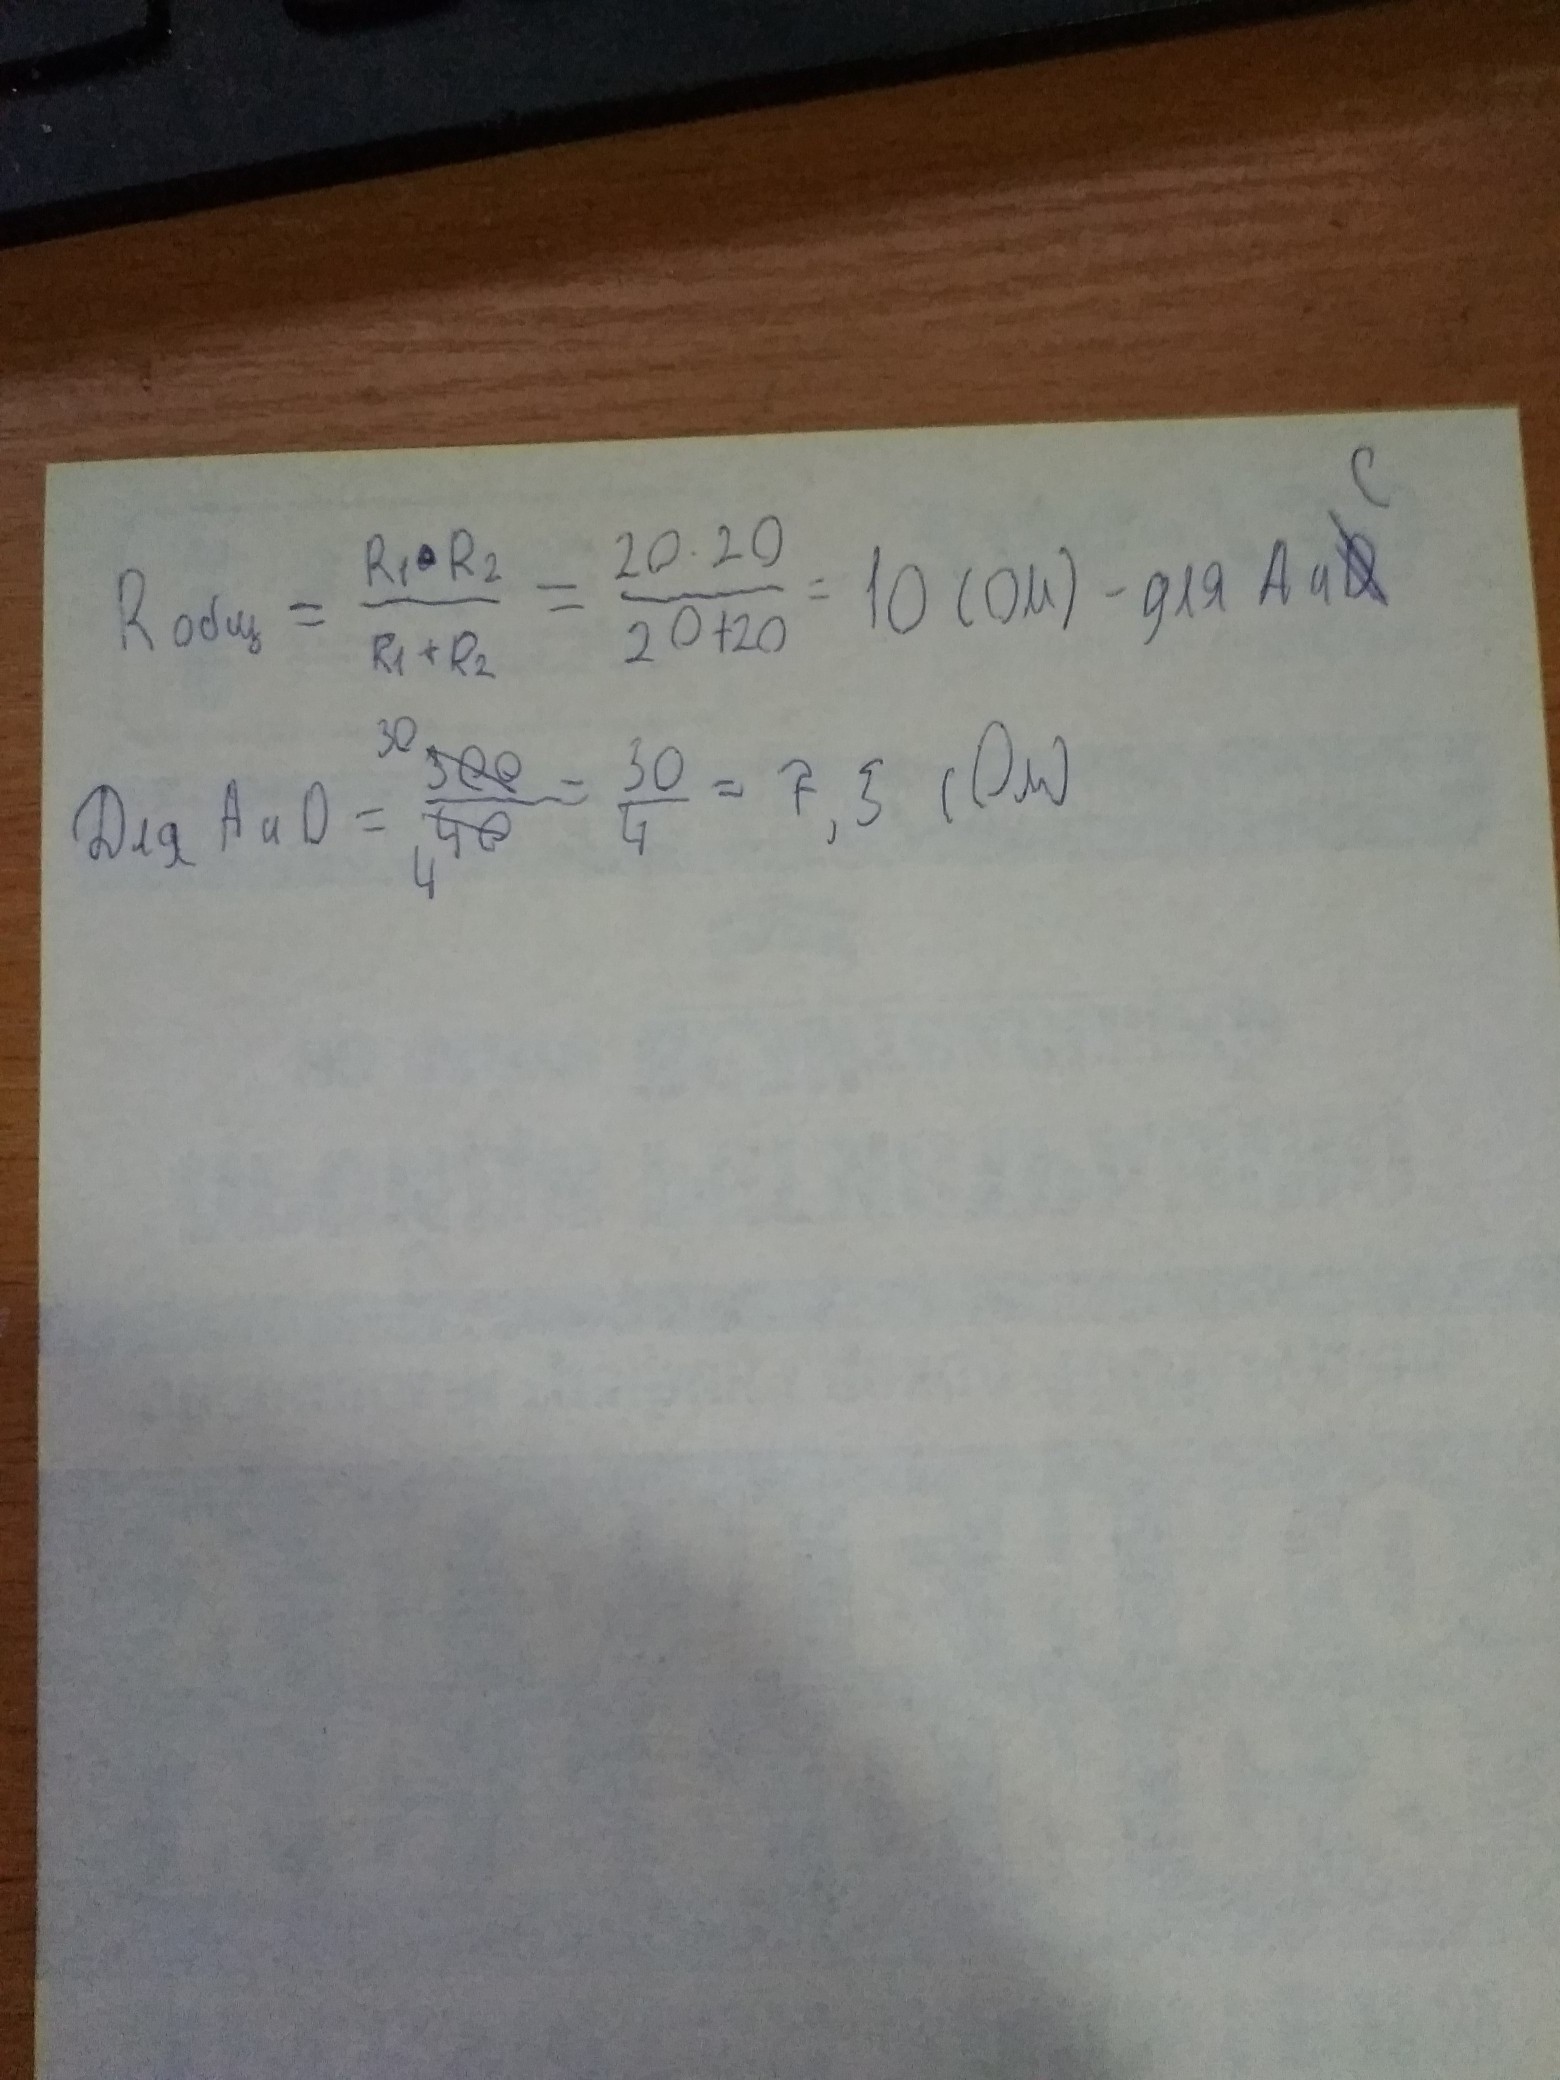 Rобщ = R1•R2 / R1+R2 = 20·20 / 20+20 = 10 (Ом) - для A и C
Для A и D = 30 300 / 4 40 = 30 / 4 = 7,5 (Ом)